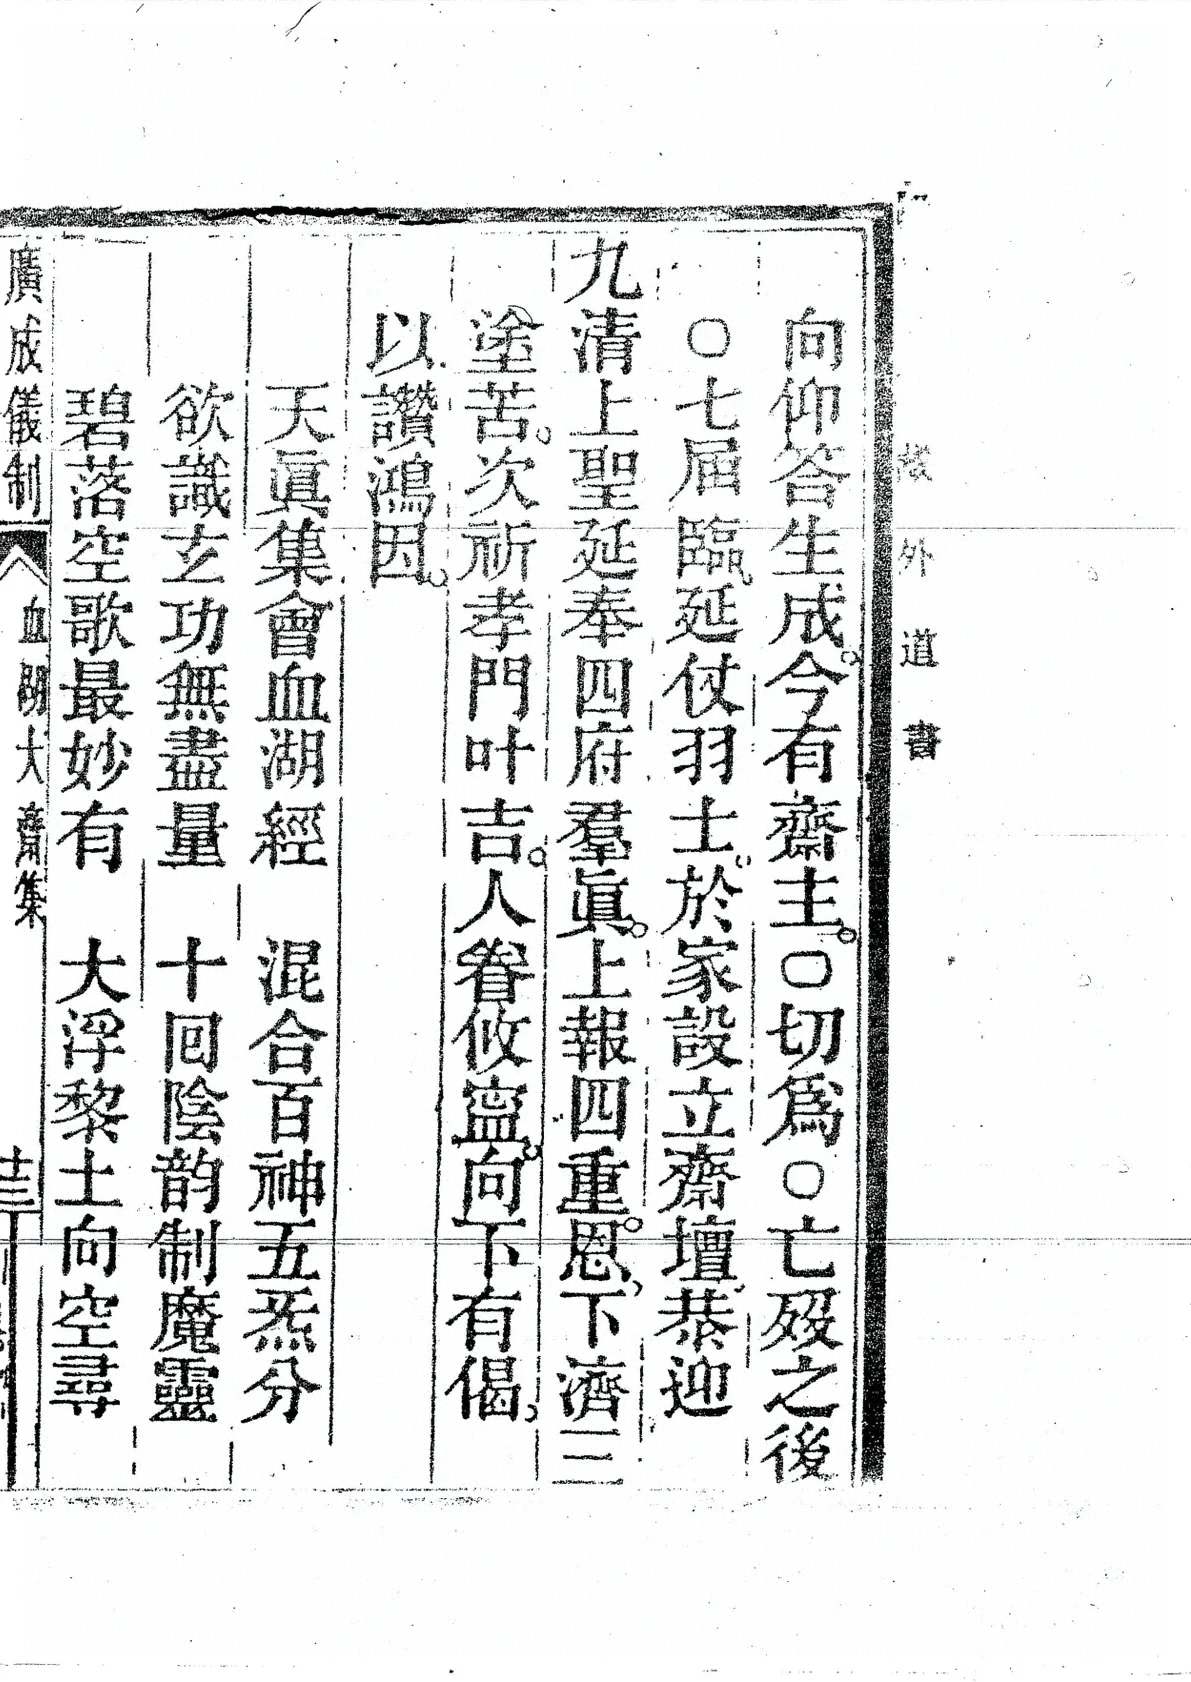 外道書
向仰答生成。今有齋主。○切爲○亡歿之後
○七届臨。延仗羽士。於家設立齋壇。恭迎
九清上聖延奉四府羣眞。上報四重恩、下濟三
塗苦。次祈孝門叶吉。人眷攸寍。向下有偈、
以讚鴻因。
天眞集會血湖經 混合百神五炁分
欲識玄功無盡量 十回陰韵制魔靈
碧落空歌最妙有 大浮黎土向空尋
廣成儀制 血湖大齋集 十三